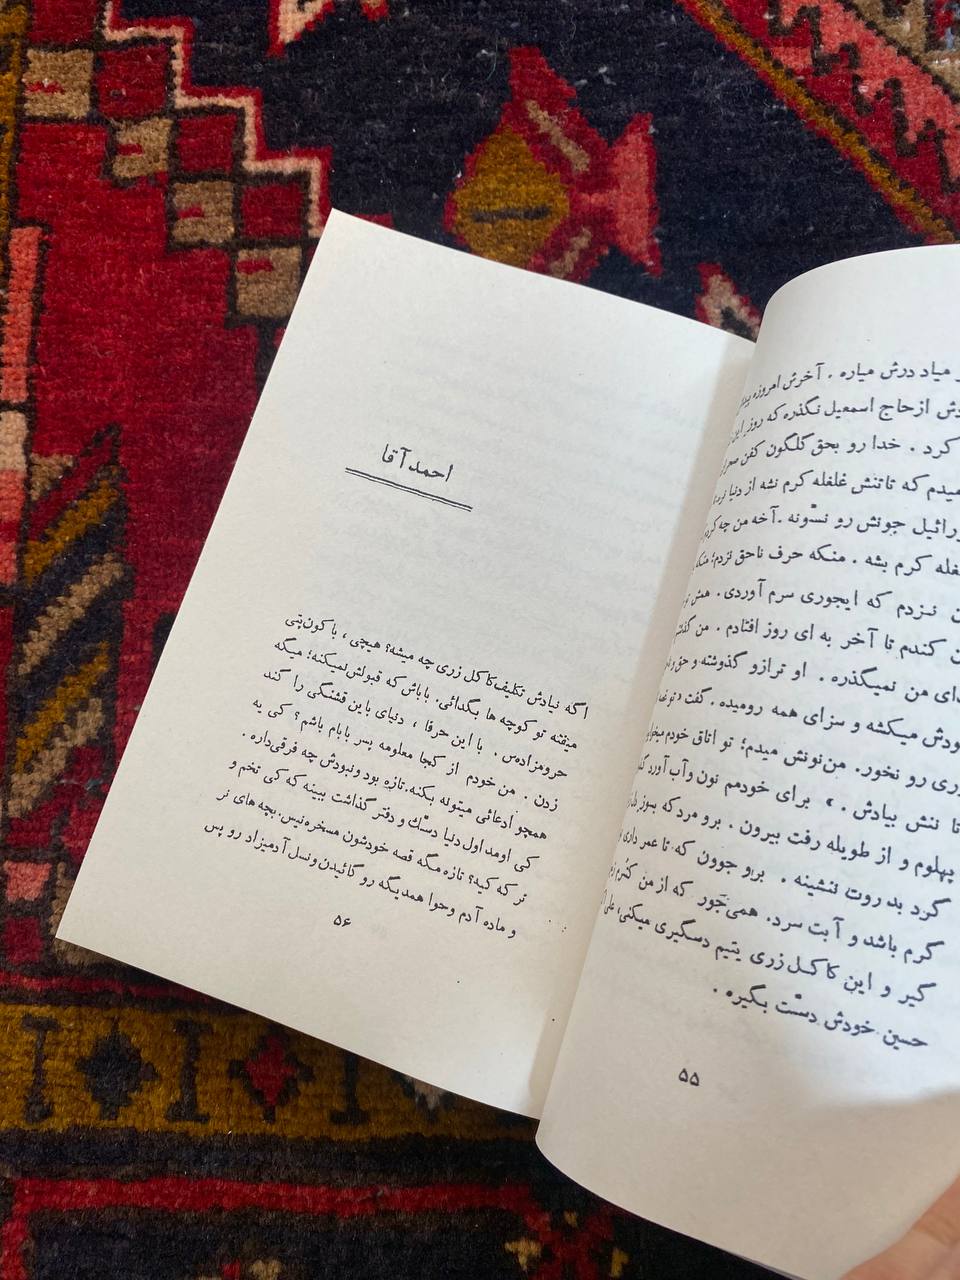 میاد درش میاره . آخرش امروزه
ازحاج اسمعیل نگذره که روز
کرد . خدا رو بحق گلگون کفن
میدم که تاتنش غلغله کرم نشه از دنیا
جونش رو نسّونه . آخه من چه
کرم بشه . منکه حرف ناحق نزدم؛
نـزدم که ایجوری سرم آوردی . همش
کندم تا آخر به ای روز افتادم . من
من نمیگذره . او ترازو گذوشته و حق و
میکشه و سزای همه رومیده . گفت «تو
رو نخور. من‌نونش میدم؛ تو اتاق خودم
تنش بیادش . » برای خودمم نون وآب آورد
پهلوم و از طویله رفت بیرون . برو مرد که
گرد بد روت ننشینه . برو جوون که تا عمر داری
گرم باشد و آبت سرد. همی‌جَور که از من
گیر و این کاکل زری یتیم دسگیری میکنی،
حسین خودش دست بگیره .
۵۵
احمدآقا
اگه نیادش تکلیف‌کاکل زری چه میشه؟ هیچی ، با کون‌پتی
میفته تو کوچه ها بگدائی. باباش که قبولش‌نمیکنه؛ میگه
حرومزاده‌س . با این حرفا ، دنیای باین قشنگی را گند
زدن . من خودم از کجا معلومه پسر بابام باشم ؟ کی یه
همچو ادعائی میتونه بکنه. تازه بود ونبودش چه فرقی‌داره .
کی اومد اول دنیا دستك و دفتر گذاشت ببینه که کی تخم و
تر که کیه؟ تازه مگه قصه خودشون مسخره‌نیس. بچه های نر
و ماده آدم وحوا همدیگه رو گائیدن ونسل آدمیزاد رو پس
۵۶